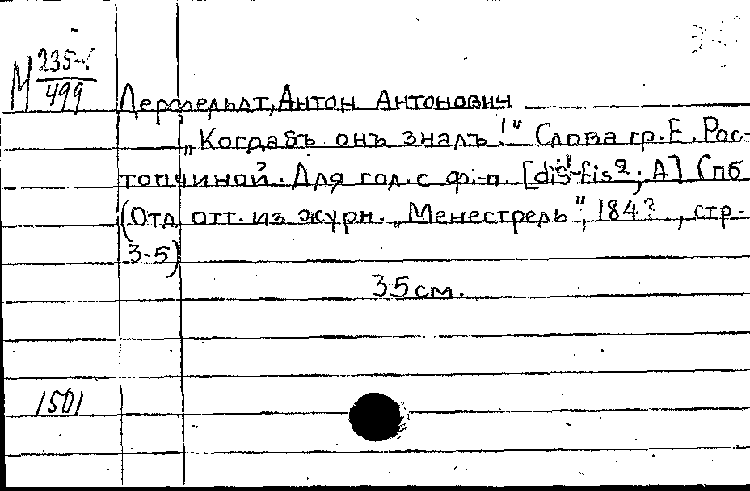 М 235-
499
Дерфельдт, Антон Антонович
„Когдабъ онъ зналъ!" Слова гр. Е. Рос-
топчиной. Для гол. с ф.-п. [dis¹-fis²; A] Спб
(Отд. отт. из журн. „Менестрель", 184?, стр-
3-5)
35 см.
1501